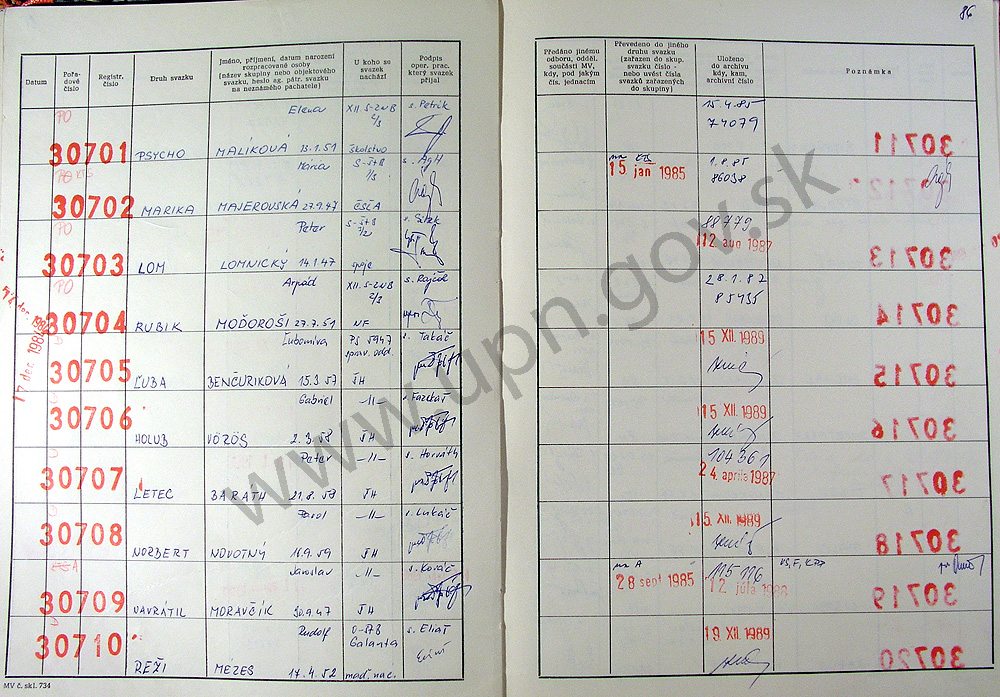 86
Datum
Pořa-
dové
číslo
Registr.
číslo
Druh svazku
Jméno, příjmení, datum narození
rozpracované osoby
(název skupiny nebo objektového
svazku, heslo ag. pátr. svazku
na neznámého pachatele)
U koho se
svazek
nachází
Podpis
oper. prac.
který svazek
přijal
Předáno jinému
odboru, odděl.
součásti MV,
kdy, pod jakým
čís. jednacím
Převedeno do jiného
druhu svazku
(zařazen do skup.
svazku číslo -
nebo uvést čísla
svazků zařazených
do skupiny)
Uloženo
do archívu
kdy, kam,
archívní číslo
Poznámka
PO
30701 PSYCHO
Elena
MALÍKOVÁ 13.1.51
XII. S-ZNB
2/3
školstvo
s. Petrík
15.4.85
74079
30711
PO KTS
30702 MARIKA
Mária
MAJEROVSKÁ 27.9.47
S-ŠTB
1/3
ČSČA
s. Agh
15. jan 1985
1.8.85
86038
PO
30703 LOM
Peter
LOMNICKÝ 14.1.47
S-ŠTB
7/2
spoje
88779
12 aug 1987
30713
PO
30704 RUBIK
Arpád
MOĎOROŠI 27.7.51
XII. S-ZNB
2/3
NF
s. Rajčok
28.1.87
85435
30714
17 dec 1984
30705 ĽUBA
Ľubomíra
BENČURIKOVÁ 15.3.57
PS 5947
správ. odd.
ŤH
s. Takáč
15 XII. 1989
30715
30706 HOLUB
Gabriel
VÖZÖS 2.3.58
-||-
ŤH
s. Fazekaš
15 XII. 1989
30716
30707 LETEC
Peter
BARATH 21.8.59
-||-
ŤH
s. Horváth
104361
24. apríla 1987
30717
30708 NORBERT
Pavol
NOVOTNÝ 16.9.59
-||-
ŤH
s. Lukáč
15 XII. 1989
30718
30709 NAVRÁTIL
Jaroslav
MORAVČÍK 30.9.47
-||-
ŤH
s. Kováč
A
28 sept 1985
115 116
12 júla 1988
30719
30710 REŽI
Rudolf
MEZES 17.4.52
O-ŠTB
Galanta
maď. nac.
s. Eliáš
19 XII. 1989
30720
MV č. skl. 734
www.upn.gov.sk